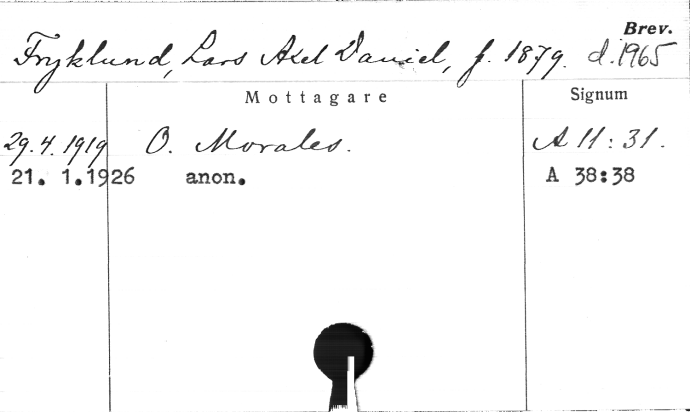 Brev.
Fryklund, Lars Axel Daniel, f. 1879. d. 1965
Mottagare Signum
29.4.1919 O. Morales. A 11:31.
21. 1.1926 anon. A 38:38